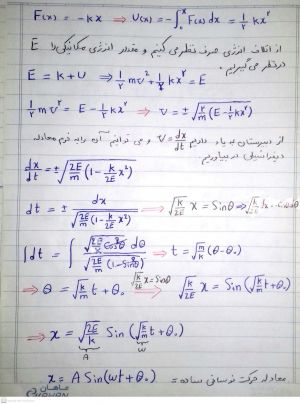 F(x) = -kx ⇒ U(x) = -∫₀ˣ F(x) dx = ½ kx²
از اتلاف انرژی صرف نظر می کنیم و مقدار انرژی مکانیکی را E
در نظر می گیریم.
E = K + U ⇒ ½ mv² + ½ kx² = E
½ mv² = E - ½ kx² ⇒ v = ±√(۲/m (E - ½ kx²))
از دبیرستان به یاد داریم v = dx/dt و می توانیم آن را به فرم معادله
دیفرانسیلی در بیاوریم.
dx/dt = ±√(2E/m (1 - k/2E x²))
dt = ± dx / √(2E/m (1 - k/2E x²)) ⇒ √(k/2E) x = Sinθ ⇒
∫dt = ∫ dθ / √(2E/m (1 - Sin²θ)) ⇒ t = √(m/k) (θ - θ₀)
⇒ θ = √(k/m) t + θ₀ √(k/2E) x = Sinθ ⇒ √(k/2E) x = Sin(√(k/m) t + θ₀)
⇒ x = √(2E/k) Sin(√(k/m) t + θ₀)
A ω
معادله حرکت نوسانی ساده = x = A Sin(ωt + θ₀)